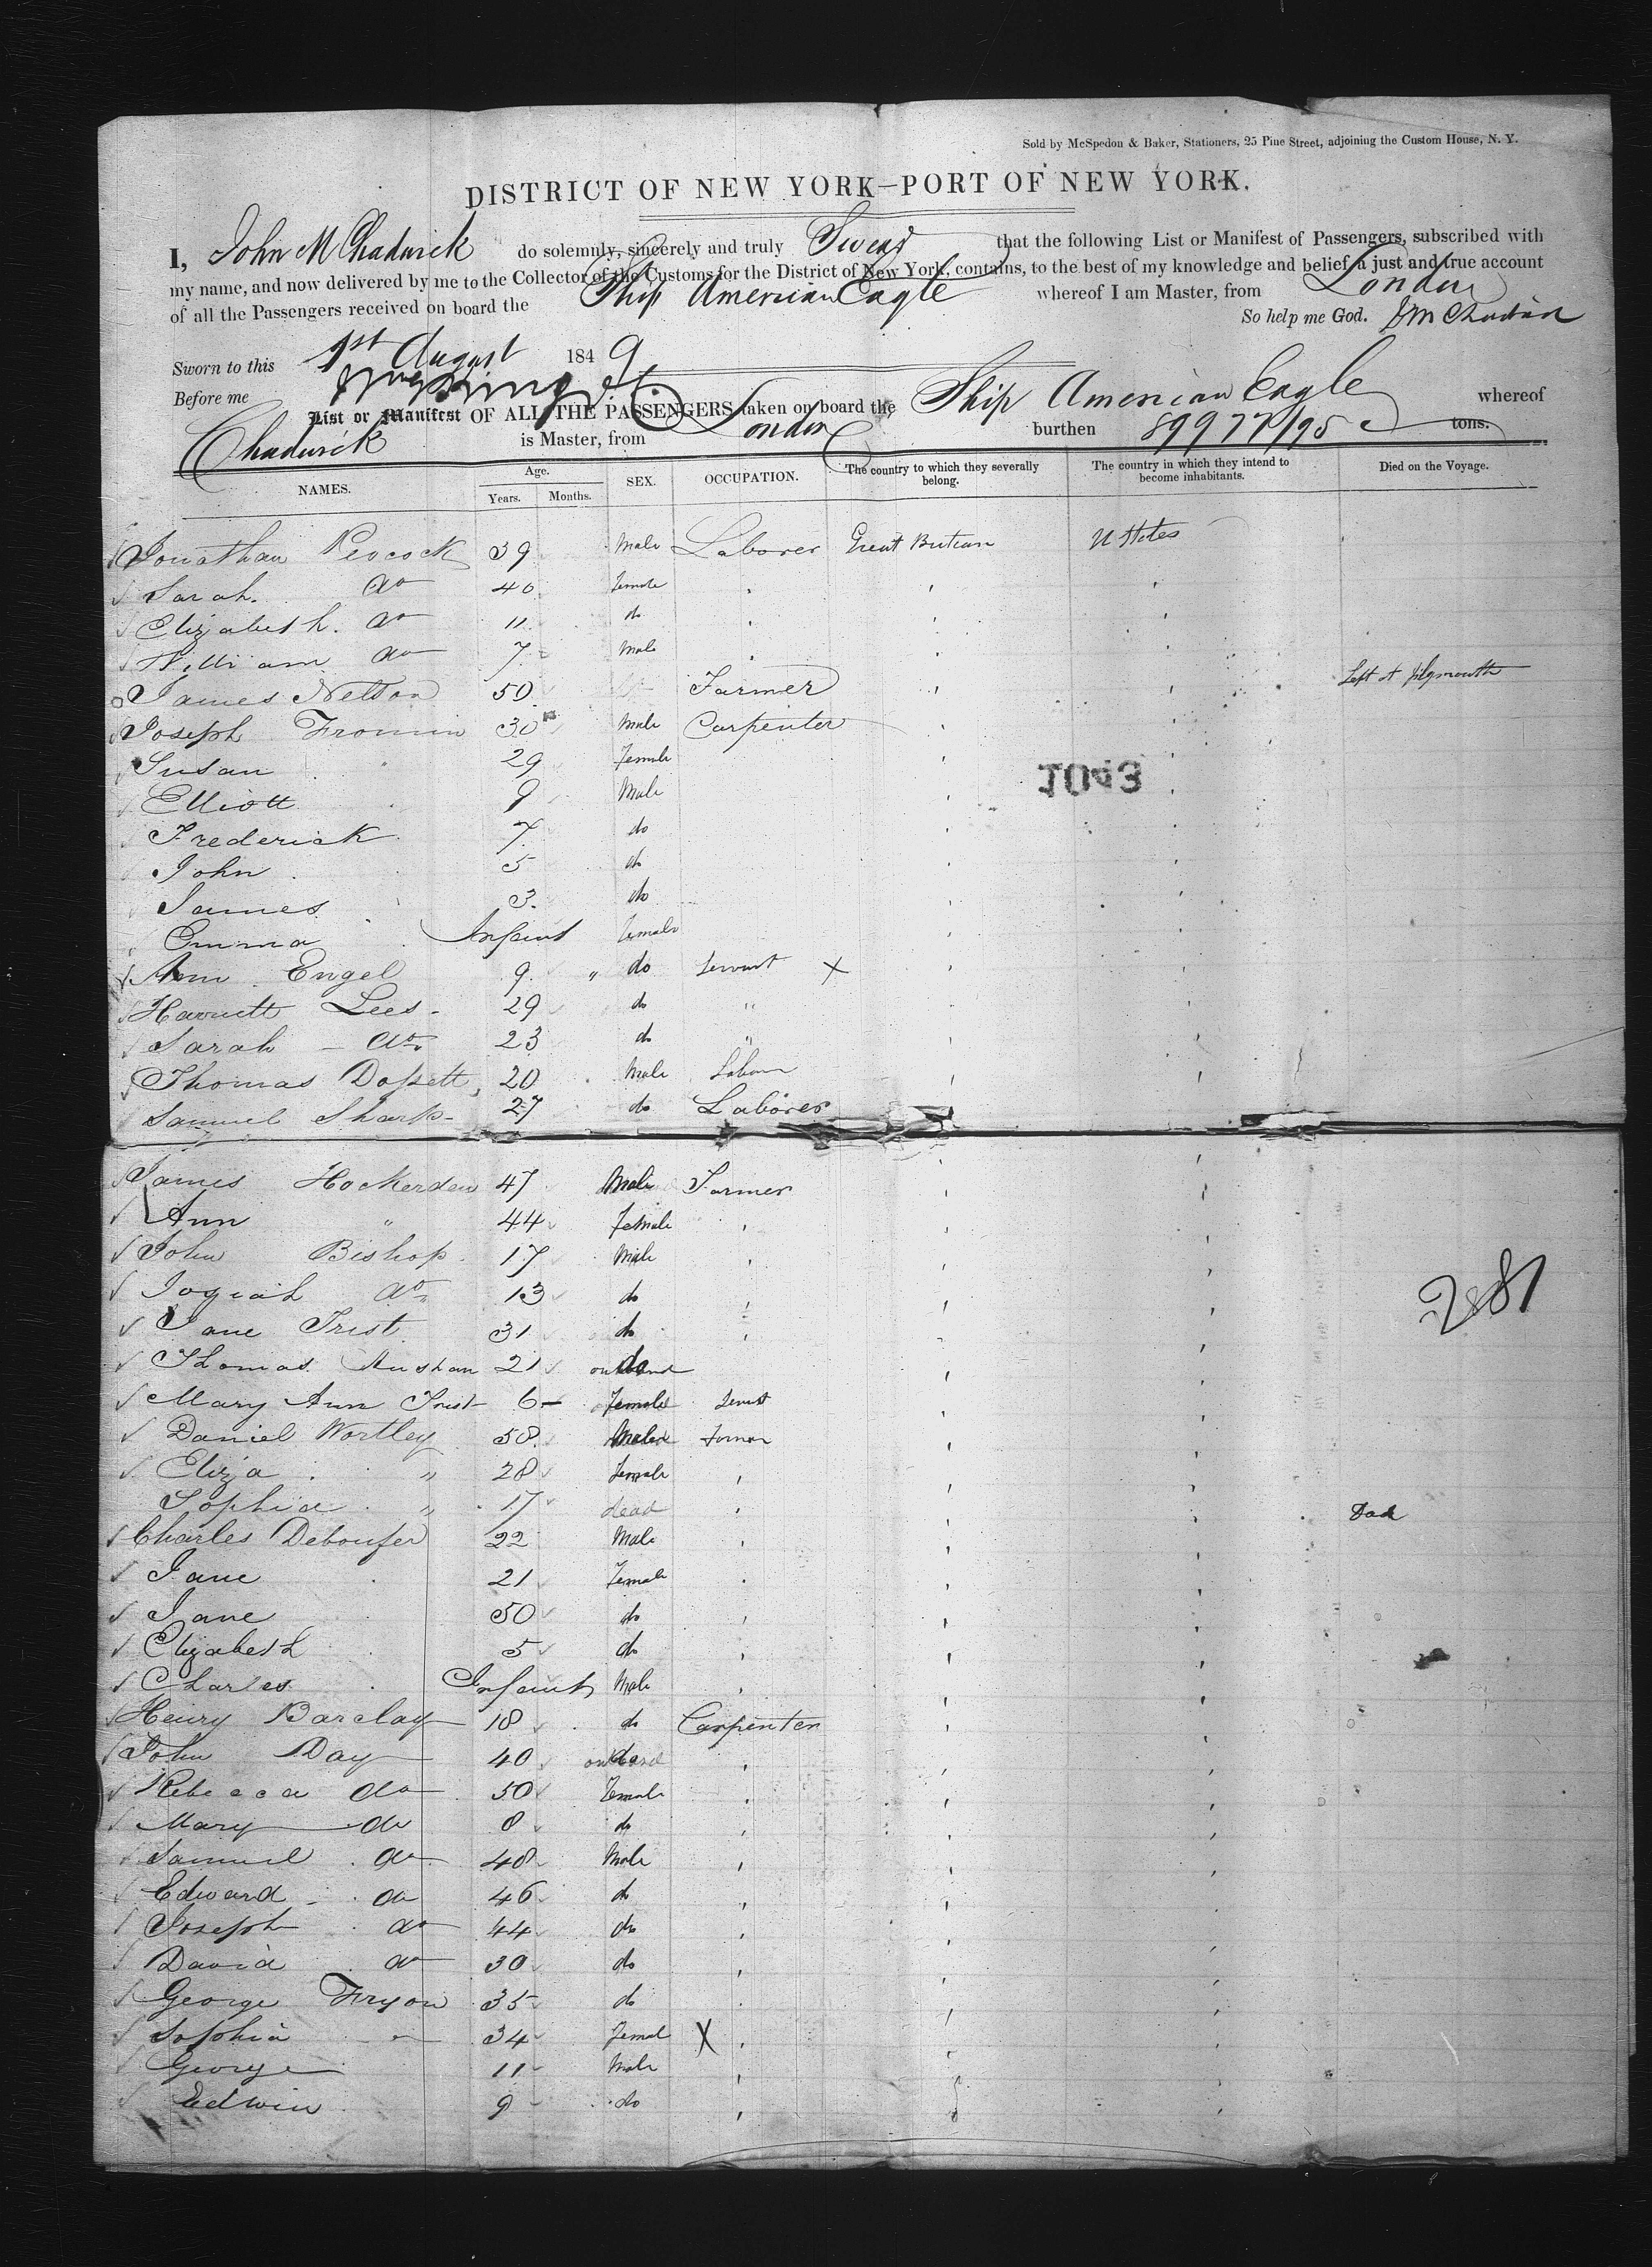 Sold by McSpedon & Baker, Stationers, 25 Pine Street, adjoining the Custom House, N. Y.
DISTRICT OF NEW YORK—PORT OF NEW YORK.
I, John M Chadwick do solemnly, sincerely and truly Swear that the following List or Manifest of Passengers, subscribed with
my name, and now delivered by me to the Collector of the Customs for the District of New York, contains, to the best of my knowledge and belief, a just and true account
of all the Passengers received on board the Ship American Eagle whereof I am Master, from London
So help me God. J M Chadwick
Sworn to this 1st August 1849
Before me
List or Manifest OF ALL THE PASSENGERS taken on board the Ship American Eagle whereof
Chadwick is Master, from London burthen 899 77/95 tons.
NAMES. Age. Years. Months. SEX. OCCUPATION. The country to which they severally belong. The country in which they intend to become inhabitants. Died on the Voyage.
Jonathan Peocock 39 Male Laborer Great Britian U States
Sarah do 40 Female
Elizabeth do 11 do
William do 7 Male
James Nelson 50 Farmer Left at plymouth
Joseph Fromin 30 Male Carpenter
Susan 29 Female
Elliott 9 Male
Frederick 7 do
1043
John 5 do
James 3 do
Emma Infant Female
Ann Engel 9 " do Servant X
Harriett Lees 29 do "
Sarah do 23 do "
Thomas Dossett 20 Male Labour
Samuel Sharp 27 do Laborer
James Hockerden 47 Male Farmer
Ann " 44 Female
John Bishop 17 Male
Josiah do 13 do
281
Jane Trist 31 do
Thomas 21 do
Mary Ann Trist 6 Female Servt
Daniel Wortley 58 Male Farmer
Eliza " 28 Female
Sophia " 17 dead Dead
Charles Deboufer 22 Male
Jane 21 Female
Jane 50 do
Elizabeth 5 do
Charles Infant Male
Henry Barclay 18 do Carpenter
John Day 40 do
Rebecca do 50 Female
Mary do 8 do
Samuel do 48 Male
Edward do 46 do
Joseph do 44 do
David do 30 do
George Fryon 35 do
Sophia " 34 Femal X
George 11 Male
Edwin 9 do